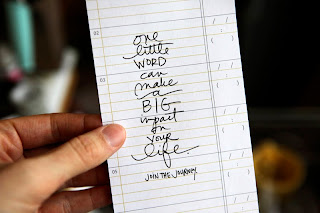 02
one
little
WORD
can
03
make
a
BIG
impact
on
your
life
05
JOIN THE JOURNEY